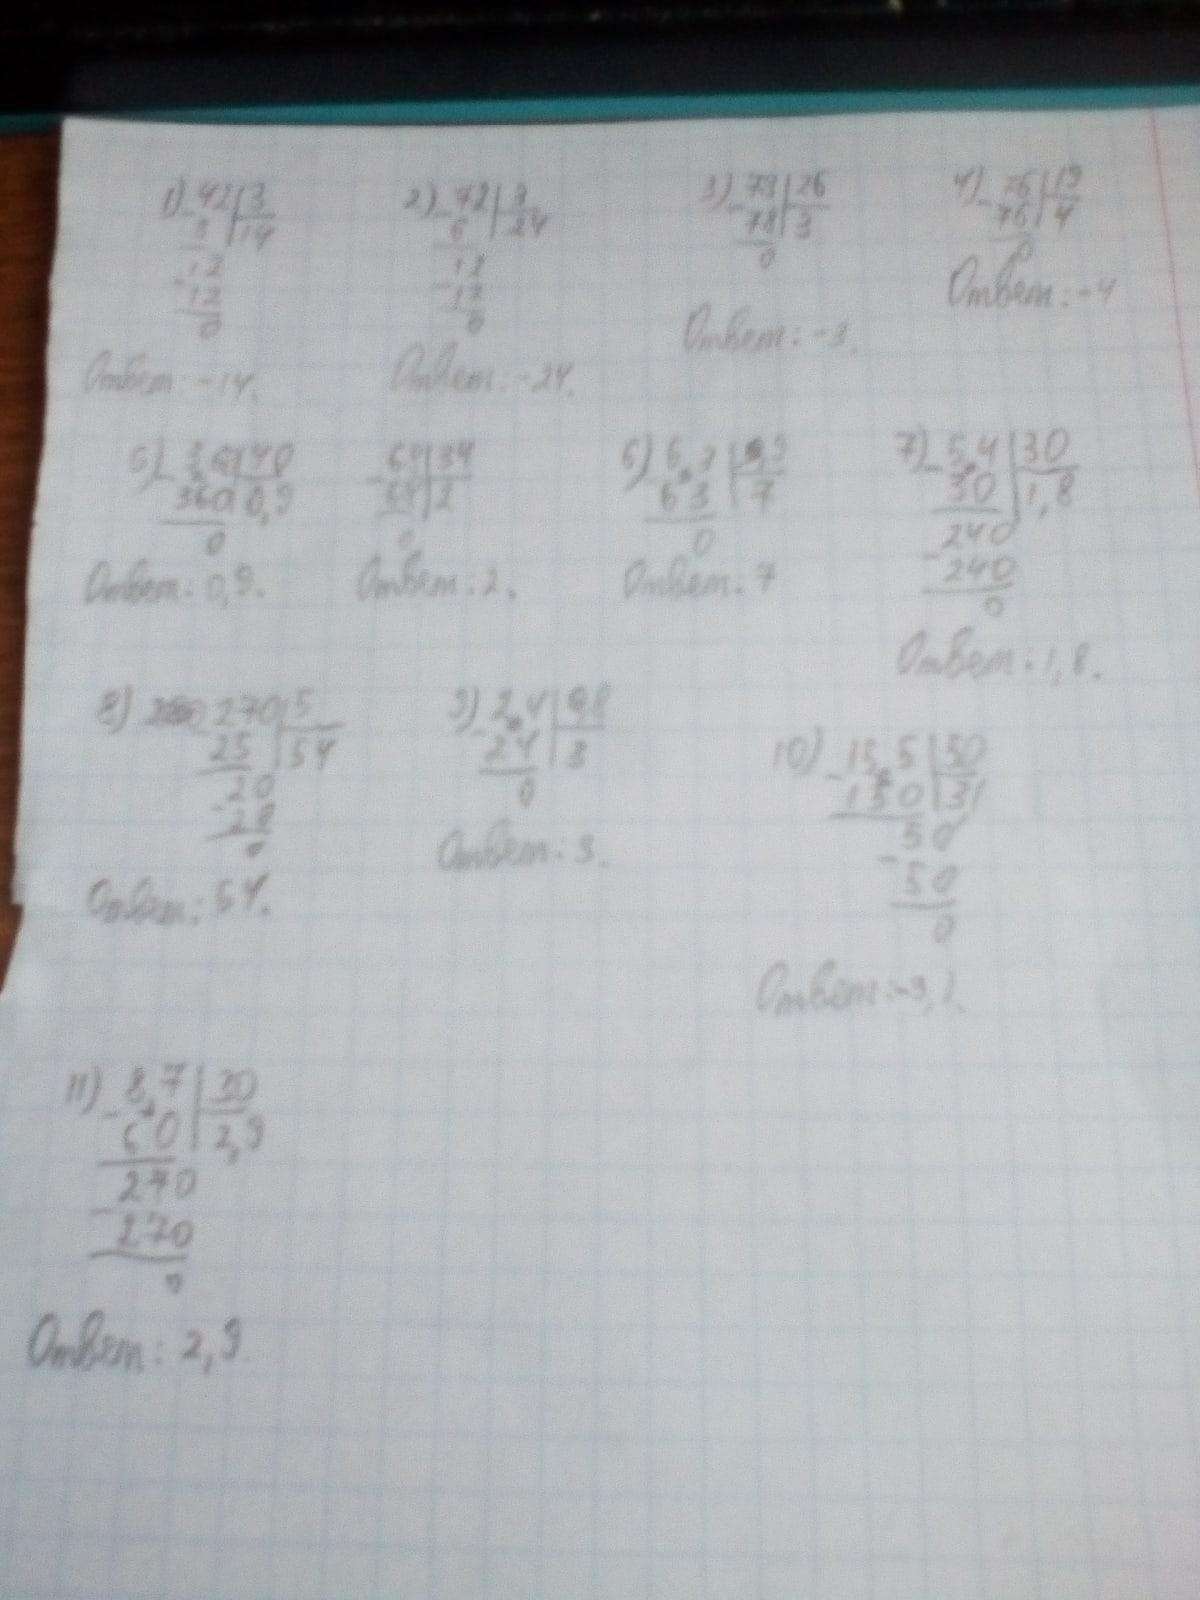 1) 42 3
- 3 14
- 12
12
0
Ответ: -14.
2) 72 3
- 6 24
- 12
12
0
Ответ: -24.
3) 78 26
- 78 3
0
Ответ: -3.
4) 76 19
- 76 4
0
Ответ: -4
5) 36 40
- 360 0,9
0
Ответ: 0,9.
- 68 34
68 2
0
Ответ: 2.
6) 6,3
- 63 7
0
Ответ: 7
7) 5,4 30
- 30 1,8
240
- 240
0
Ответ: 1,8.
8) 270 5
- 25 54
20
- 20
0
Ответ: 54.
9) 2,4
- 24 3
0
Ответ: 3.
10) 15,5 50
- 150 31
50
- 50
0
Ответ: -3,1.
11) 8,7 30
- 60 2,9
270
- 270
0
Ответ: 2,9.